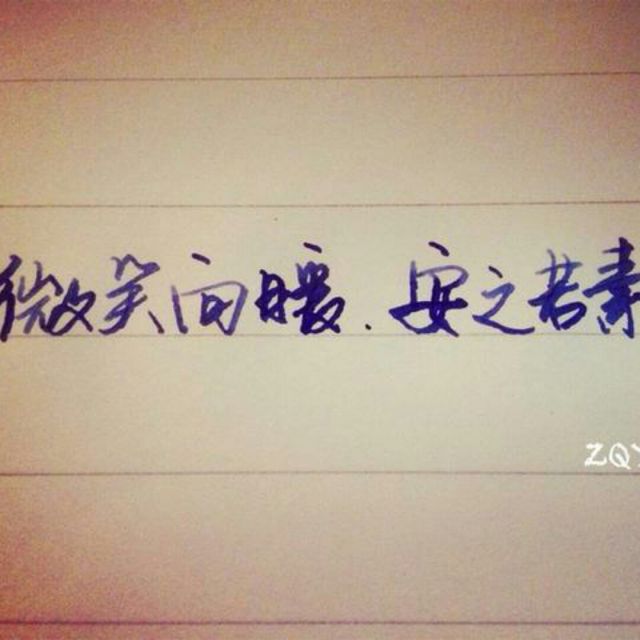 微笑向暖.安之若素
ZQY